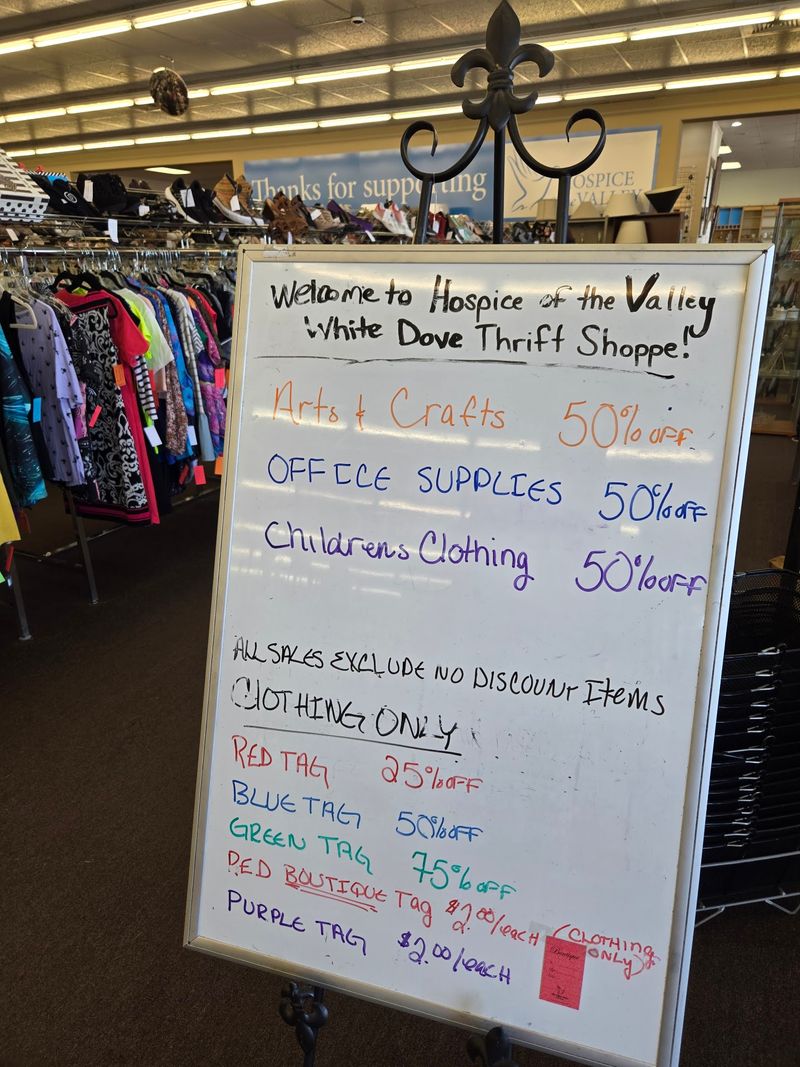 Thanks for supporting
HOSPICE
of the VALLEY
Welcome to Hospice of the Valley
White Dove Thrift Shoppe!
Arts & Crafts 50% OFF
OFFICE SUPPLIES 50% OFF
Childrens Clothing 50% OFF
ALL SALES EXCLUDE NO DISCOUNT Items
CLOTHING ONLY
RED TAG 25% OFF
BLUE TAG 50% OFF
GREEN TAG 75% OFF
RED BOUTIQUE Tag $2.00/eacH (CLOTHING ONLY)
PURPLE TAG $2.00/eacH
Boutique